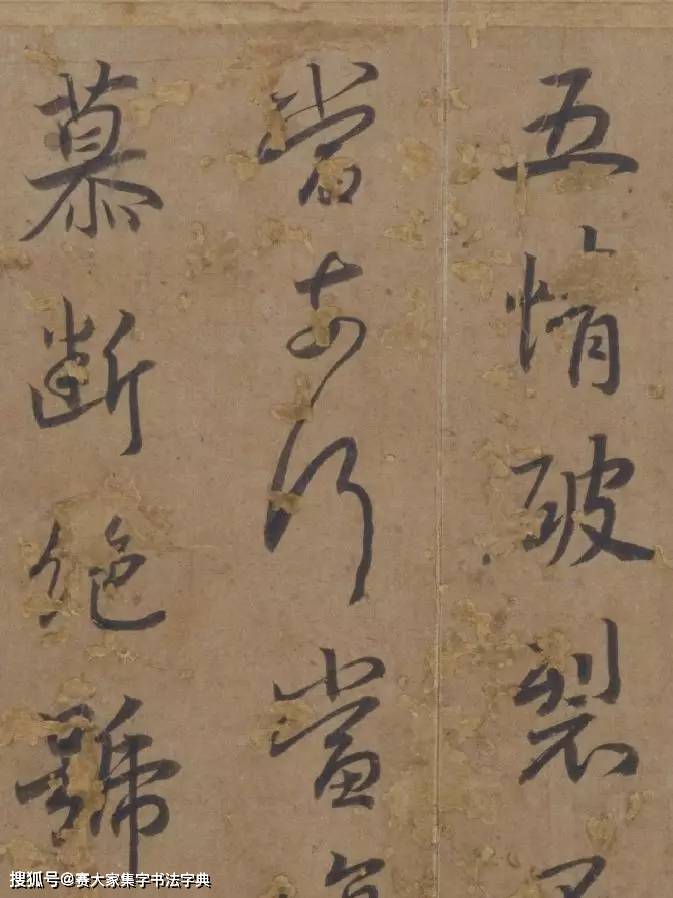 五情破裂
當奈何當
慕断絕號
搜狐号@赛大家集字书法字典